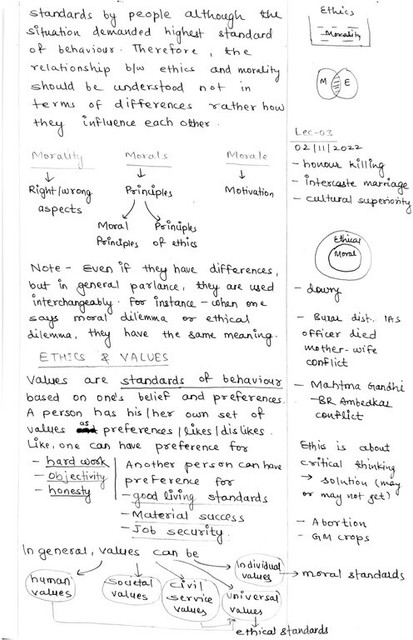 standards by people although the
situation demanded highest standard
of behaviour. Therefore, the
relationship b/w ethics and morality
should be understood not in
terms of differences rather how
they influence each other.
Morality Morals Morale
Right/wrong Principles Motivation
aspects
Moral Principles
Principles of ethics
Note - Even if they have differences,
but in general parlance, they are used
interchangeably. For instance - when one
says moral dilemma or ethical
dilemma, they have the same meaning.
ETHICS & VALUES
Values are standards of behaviour
based on one's belief and preferences.
A person has his/her own set of
values as preferences/likes/dislikes.
Like, one can have preference for
- hard work
- objectivity
- honesty
Another person can have
preference for
- good living standards
- Material success
- Job security.
In general, values can be
human values
societal values
civil service values
universal values
Individual values
moral standards
ethical standards
Ethics
Morality
M E
Lec-03
02/11/2022
- honour killing
- intercaste marriage
- cultural superiority
Ethical
Moral
- dowry
- dist. IAS
officer died
mother-wife
conflict
- Mahtma Gandhi
- BR Ambedkar
conflict
Ethics is about
critical thinking
→ solution (may
or may not get)
- Abortion
- GM crops